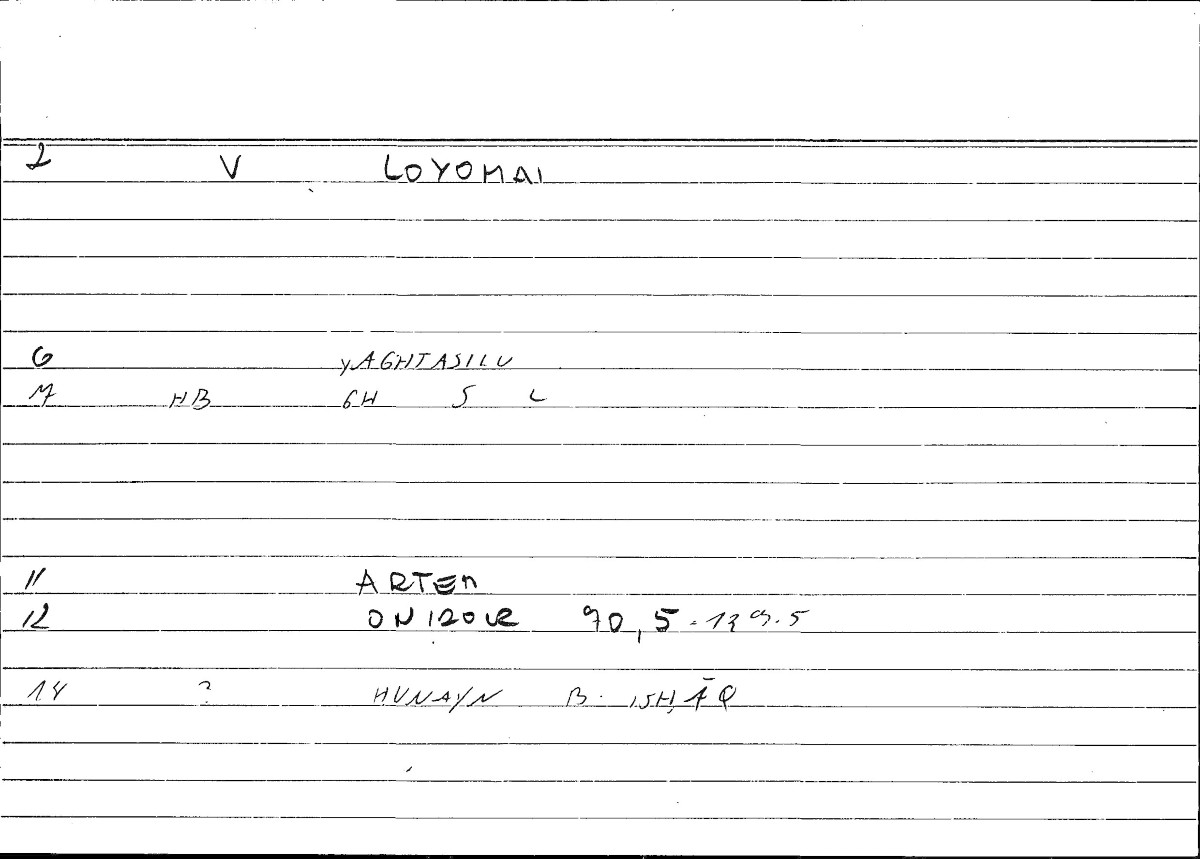 2 V LOYOMAI
6 YAGHTASILU
M HB GH S L
11 ARTEM
12 ONIROUR 90,5-139.5
14 ? HUNAYN B. ISḤĀQ